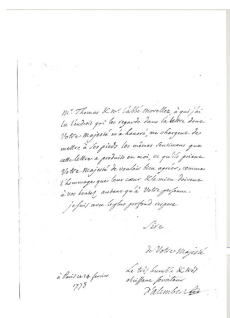 Mr. Thomas & Mr. l'abbé Morellet, à qui j'ai
lu l'endroit qui les regarde dans la lettre dont
Votre Majesté m'a honoré, me chargent de
mettre à ses pieds les mêmes sentimens que
cette lettre a produits en moi, et qu'ils prient
Votre Majesté de vouloir bien agréer, comme
l'hommage que leur cœur & le mien doivent
à vos bontés, autant qu'à Votre personne.
je suis avec le plus profond respect
Sire
de Votre Majesté
à Paris ce février
1778
Le très humble & très
obéissant serviteur
D'alembert